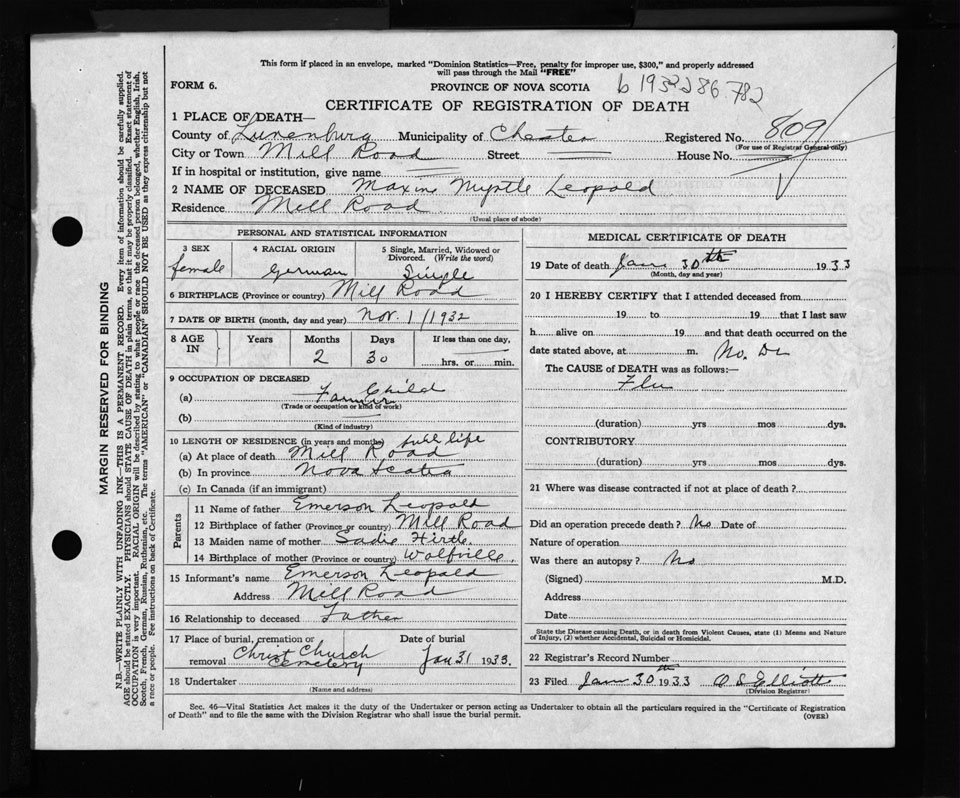 This form if placed in an envelope, marked "Dominion Statistics—Free, penalty for improper use, $300," and properly addressed
will pass through the Mail "FREE"
FORM 6.
PROVINCE OF NOVA SCOTIA
CERTIFICATE OF REGISTRATION OF DEATH
809
1 PLACE OF DEATH—
County of Lunenburg Municipality of Chester Registered No.
(For use of Registrar General only)
City or Town Mill Road Street House No.
If in hospital or institution, give name
2 NAME OF DECEASED Maxine Myrtle Leopold
Residence Mill Road
(Usual place of abode)
PERSONAL AND STATISTICAL INFORMATION
3 SEX 4 RACIAL ORIGIN 5 Single, Married, Widowed or
Divorced. (Write the word)
female German Single
6 BIRTHPLACE (Province or country) Mill Road
7 DATE OF BIRTH (month, day and year) Nov. 1/1932
8 AGE
IN
Years Months Days If less than one day,
2 30 hrs. or min.
9 OCCUPATION OF DECEASED
(a) Child
(Trade or occupation or kind of work)
(b)
(Kind of industry)
10 LENGTH OF RESIDENCE (in years and months) full life
(a) At place of death Mill Road
(b) In province Nova Scotia
(c) In Canada (if an immigrant)
Parents
11 Name of father Emerson Leopold
12 Birthplace of father (Province or country) Mill Road
13 Maiden name of mother Sadie Hirtle
14 Birthplace of mother (Province or country) Wolfville.
15 Informant's name Emerson Leopold
Address Mill Road
16 Relationship to deceased Father
17 Place of burial, cremation or Date of burial
removal Christ Church
Cemetery Jan 31 1933.
18 Undertaker
(Name and address)
MEDICAL CERTIFICATE OF DEATH
19 Date of death Jan 30th 1933
(Month, day and year)
20 I HEREBY CERTIFY that I attended deceased from
19 to 19 that I last saw
h alive on 19 and that death occurred on the
date stated above, at m. No. Dr
The CAUSE of DEATH was as follows:—
Flu
(duration) yrs mos dys.
CONTRIBUTORY
(duration) yrs mos dys.
21 Where was disease contracted if not at place of death ?
Did an operation precede death ? No Date of
Nature of operation
Was there an autopsy ? No
(Signed) M.D.
Address
Date
State the Disease causing Death, or in death from Violent Causes, state (1) Means and Nature
of Injury, (2) whether Accidental, Suicidal or Homicidal.
22 Registrar's Record Number
23 Filed Jan 30th 1933 O S Elliott
(Division Registrar)
Sec. 46—Vital Statistics Act makes it the duty of the Undertaker or person acting as Undertaker to obtain all the particulars required in the "Certificate of Registration
of Death" and to file the same with the Division Registrar who shall issue the burial permit.
(OVER)
MARGIN RESERVED FOR BINDING
N.B.—WRITE PLAINLY WITH UNFADING INK—THIS IS A PERMANENT RECORD. Every item of information should be carefully supplied.
AGE should be stated EXACTLY. PHYSICIANS should STATE CAUSE OF DEATH in plain terms, so that it may be properly classified. Exact statement of
OCCUPATION is very important. RACIAL ORIGIN will be described by stating to what people or race the deceased person belonged, whether English, Irish,
Scotch, French, German, Russian, Ruthenian, etc. The terms "AMERICAN" or "CANADIAN" SHOULD NOT BE USED as they express citizenship but not
a race or people. See instructions on back of Certificate.